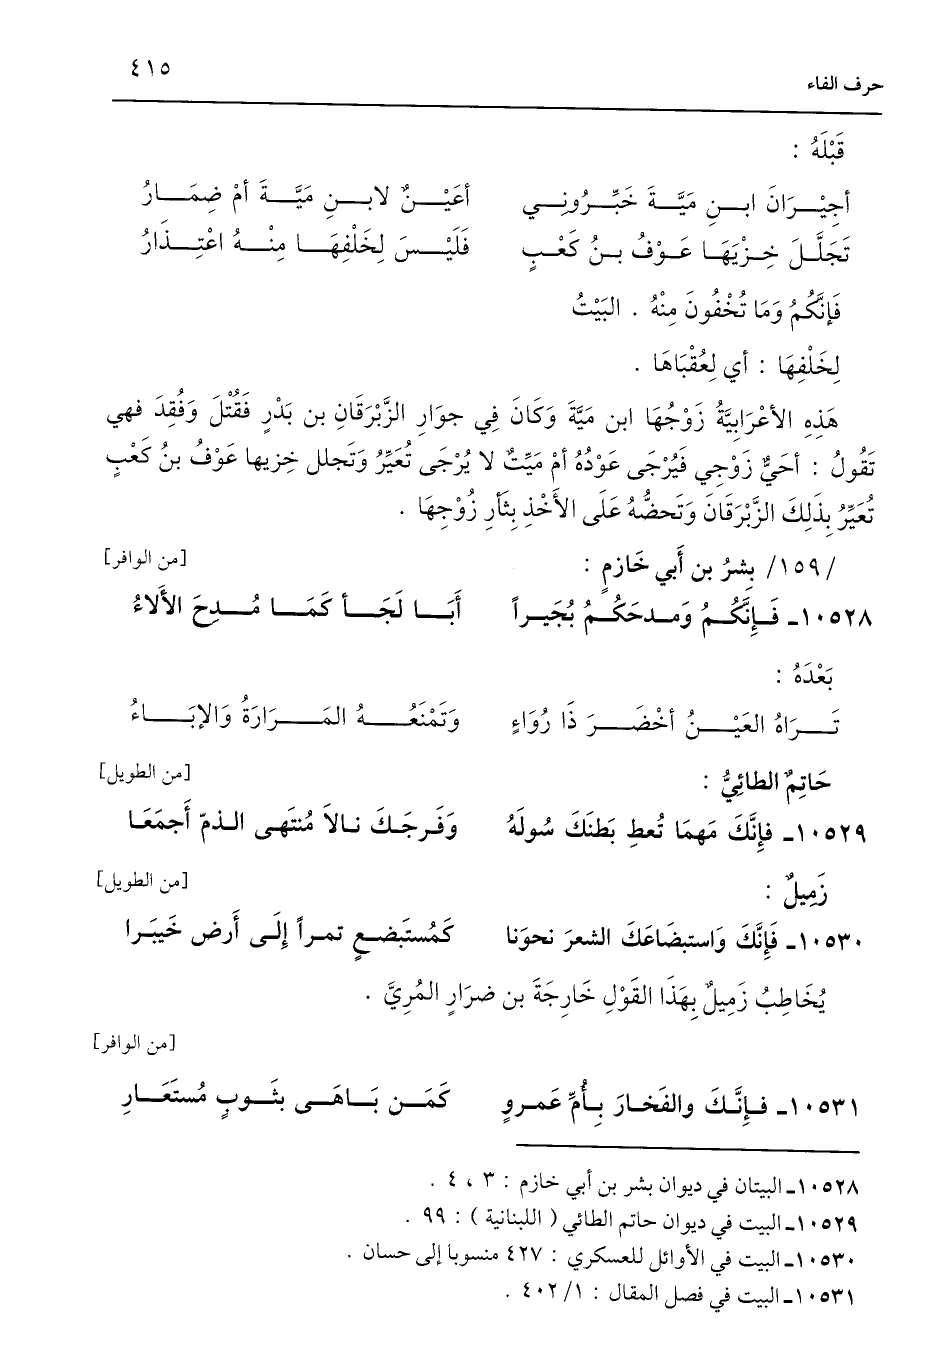 حرف الفاء ٤١٥
قَبْلَهُ :
أجِيْـرَانَ ابـنِ مَيَّـةَ خَبِّـرُونِـي أعَيْـنٌ لابـنِ مَيَّـةَ أمْ ضِمَـارُ
تَجَلَّـلَ خِـزْيَهَـا عَـوْفُ بـنُ كَعْـبٍ فَلَيْـسَ لِخَلْفِهَـا مِنْـهُ اعْتِـذَارُ
فَإنَّكُمُ وَمَا تُخْفُونَ مِنْهُ . البَيْتُ
لِخَلْفِهَا : أي لِعُقْبَاهَا .
هَذِهِ الأعْرَابِيَّةُ زَوْجُهَا ابن مَيَّةَ وَكَانَ فِي جوَارِ الزَّبْرَقَانِ بن بَدْرٍ فَقُتْلَ وَفُقِدَ فهي
تَقُولُ : أحَيٌّ زَوْجِي فَيُرْجَى عَوْدُهُ أمْ مَيِّتٌ لا يُرْجَى تُعَيِّرُ وَتجلل خِزيها عَوْفُ بنُ كَعْبٍ
تُعَيِّرُ بِذَلِكَ الزَّبْرَقَانَ وَتَحضُّهُ عَلَى الأَخْذِ بِثَأرِ زُوْجِهَا .
/١٥٩/ بِشرُ بن أَبي خَازمٍ : [من الوافر]
١٠٥٢٨ـ فَـإنَّكُـمُ وَمـدحَكُـمُ بُجَيـراً أَبَـا لَجَـأ كَمَـا مُـدِحَ الأَلاءُ
بَعْدَهُ :
تَـرَاهُ العَيْـنُ أخْضَـرَ ذَا رُوَاءٍ وَتَمْنَعُـهُ المَـرَارَةُ وَالإبَـاءُ
حَاتِمٌ الطائِيُّ : [من الطويل]
١٠٥٢٩ـ فإنَّكَ مَهمَا تُعطِ بَطنَكَ سُولَهُ وَفَـرجَـكَ نـالاَ مُنتَهـى الـذمّ أَجمَعَـا
زَمِيلٌ : [من الطويل]
١٠٥٣٠ـ فَإنَّكَ وَاستبضَاعَكَ الشعرَ نحوَنا كَمُستَبضـعٍ تمـراً إلَـى أَرض خَيبَـرا
يُخَاطِبُ زَمِيلٌ بِهَذَا القَوْلِ خَارجَةَ بن ضرَارٍ المُريَّ .
[من الوافر]
١٠٥٣١ـ فـإنَّـكَ والفَخـارَ بـأُمِّ عَمـروٍ كَمَـن بَـاهَـى بثَـوبٍ مُستَعَـارِ
١٠٥٢٨ـ البيتان في ديوان بشر بن أبي خازم : ٣ ، ٤ .
١٠٥٢٩ـ البيت في ديوان حاتم الطائي ( اللبنانية ) : ٩٩ .
١٠٥٣٠ـ البيت في الأوائل للعسكري : ٤٢٧ منسوبا إلى حسان .
١٠٥٣١ـ البيت في فصل المقال : ١/ ٤٠٢ .